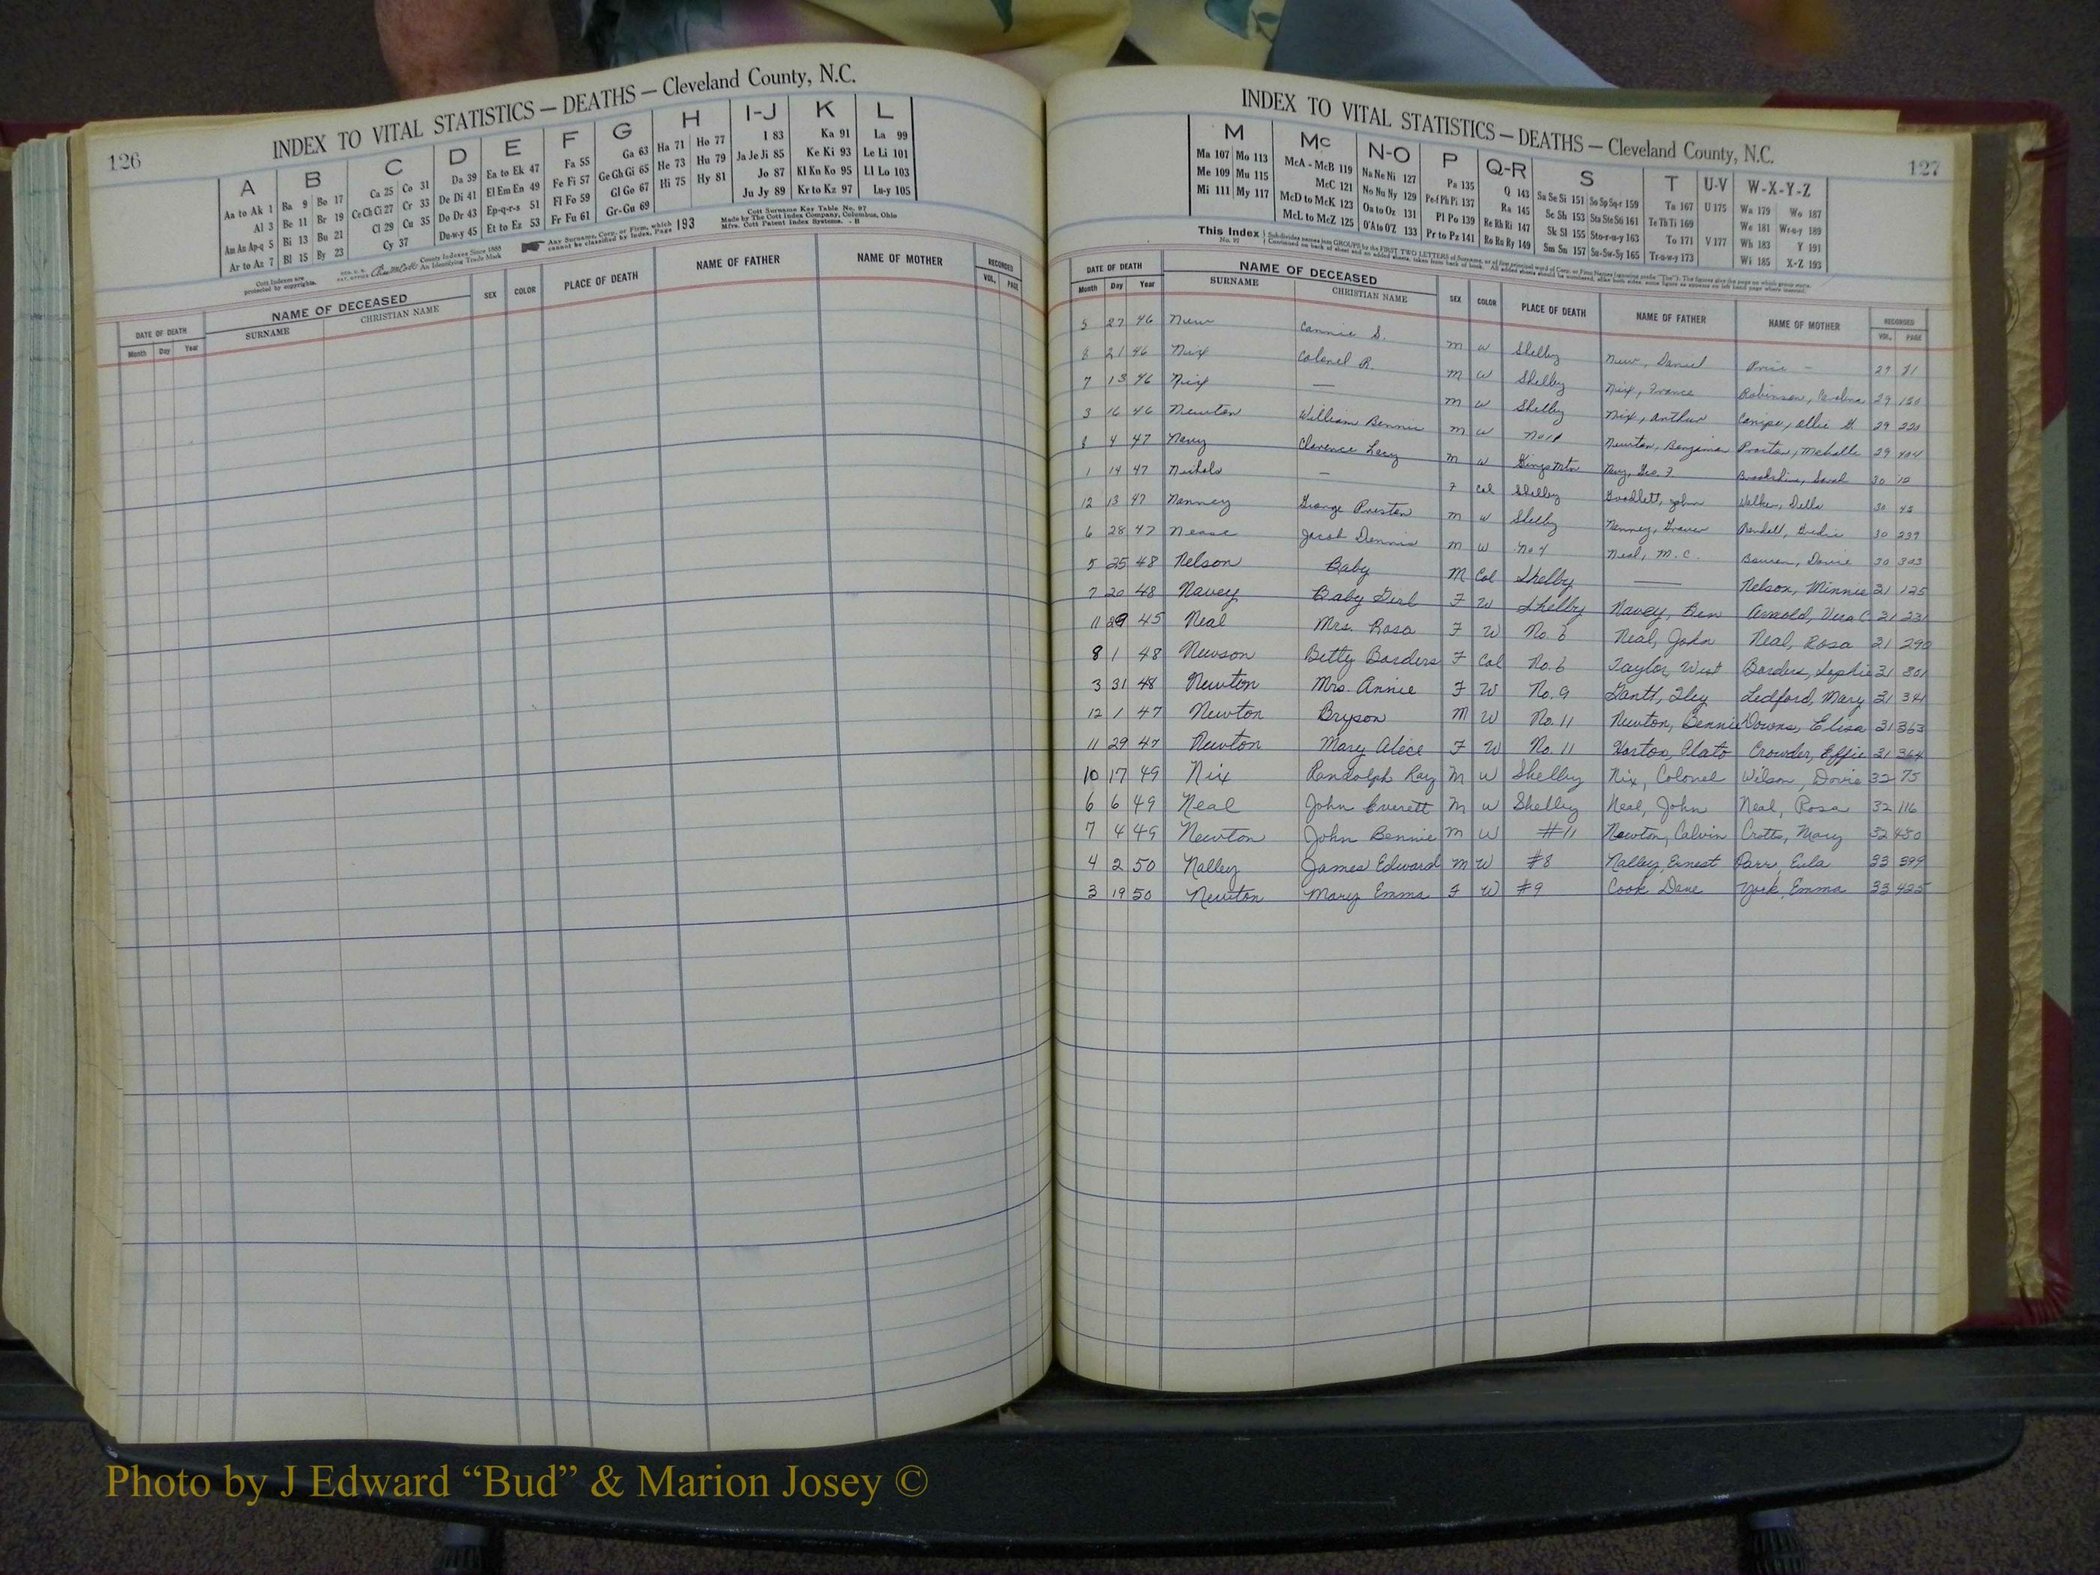 126
INDEX TO VITAL STATISTICS — DEATHS — Cleveland County, N.C.
A B C D E F G H I-J K L
Aa to Ak 1 Ba 9 Bo 17 Ca 25 Co 31 Da 39 Ea to Ek 47 Fa 55 Ga 63 Ha 71 Ho 77 I 83 Ka 91 La 99
Al 3 Be 11 Br 19 Ce Ch Ci 27 Cr 33 De Di 41 El Em En 49 Fe Fi 57 Ge Gh Gi 65 He 73 Hu 79 Ja Je Ji 85 Ke Ki 93 Le Li 101
Am An Ap-q 5 Bi 13 Bu 21 Cl 29 Cu 35 Do Dr 43 Ep-q-r-s 51 Fl Fo 59 Gl Go 67 Hi 75 Hy 81 Jo 87 Kl Kn Ko 95 Ll Lo 103
Ar to Az 7 Bl 15 By 23 Cy 37 Du-w-y 45 Et to Ez 53 Fr Fu 61 Gr-Gu 69 Ju Jy 89 Kr to Kz 97 Lu-y 105
Cott Indexes are protected by copyrights.
County Indexes Since 1888 An Identifying Trade Mark
Any Surname, Corp. or Firm, which cannot be classified by Index, Page 193
Cott Surname Key Table No. 97
Made by The Cott Index Company, Columbus, Ohio
Mfrs. Cott Patent Index Systems. - B
DATE OF DEATH NAME OF DECEASED SEX COLOR PLACE OF DEATH NAME OF FATHER NAME OF MOTHER RECORDED
Month Day Year SURNAME CHRISTIAN NAME VOL. PAGE
127
INDEX TO VITAL STATISTICS — DEATHS — Cleveland County, N.C.
M Mc N-O P Q-R S T U-V W-X-Y-Z
Ma 107 Mo 113 McA - McB 119 Na Ne Ni 127 Pa 135 Q 143 Sa Se Si 151 So Sp Sq-r 159 Ta 167 U 175 Wa 179 Wo 187
Me 109 Mu 115 McC 121 No Nu Ny 129 Pe-f Ph Pi 137 Ra 145 Se Sh 153 Sta Ste Sti 161 Te Th Ti 169 We 181 Wr-u-y 189
Mi 111 My 117 McD to McK 123 Oa to Oz 131 Pl Po 139 Re Rh Ri 147 Sk Sl 155 Sto-r-u-y 163 To 171 V 177 Wh 183 Y 191
McL to McZ 125 O'A to O'Z 133 Pr to Pz 141 Ro Ru Ry 149 Sm Sn 157 Su-Sw-Sy 165 Tr-u-w-y 173 Wi 185 X-Z 193
This Index No. 97
DATE OF DEATH NAME OF DECEASED SEX COLOR PLACE OF DEATH NAME OF FATHER NAME OF MOTHER RECORDED
Month Day Year SURNAME CHRISTIAN NAME VOL. PAGE
5 27 46 New Cannie S. M W Shelby New, Daniel Price - 29 71
8 21 46 Nix Colonel R. M W Shelby Nix, France Robinson, 29 150
7 13 46 Nix — M W Shelby Nix, Arthur Canipe, Ollie G. 29 220
3 16 46 Newton William Bennie M W Newton, Benjamin 29 404
8 4 47 Navy Clarence Lecy M W Kings Mtn Navy, Geo. F. Brookshire, Sarah 30 12
1 14 47 Nichols — F Col Shelby Goodlett, John Walker, Della 30 45
12 13 47 Nanney George Preston M W Shelby Nanney, 30 239
6 28 47 Nease Jacob Dennis M W No 4 Neal, M. C. 30 303
5 25 48 Nelson Baby M Col Shelby — Nelson, Minnie 31 125
7 20 48 Navey Baby Girl F W Shelby Navey, Ben Arrwold, Vera C. 31 231
11 29 45 Neal Mrs. Rosa F W No. 6 Neal, John Neal, Rosa 31 290
8 1 48 Newson Betty Borders F Col No. 6 Taylor, West Borders, Sophie 31 301
3 31 48 Newton Mrs. Annie F W No. 9 Gantt, Iley Ledford, Mary 31 341
12 1 47 Newton Bryson M W No. 11 Newton, Bennie Downs, Elisa 31 363
11 29 47 Newton Mary Alice F W No. 11 Horton, Plato Crowder, Effie 31 364
10 17 49 Nix Randolph Ray M W Shelby Nix, Colonel Wilson, Dovie 32 75
6 6 49 Neal John Everett M W Shelby Neal, John Neal, Rosa 32 116
7 4 49 Newton John Bennie M W #11 Newton, Calvin Crotts, Mary 32 450
4 2 50 Nalley James Edward M W #8 Nalley, Ernest Parr, Eula 33 399
3 19 50 Newton Mary Emma F W #9 Cook, Dave York, Emma 33 425
Photo by J Edward “Bud” & Marion Josey ©